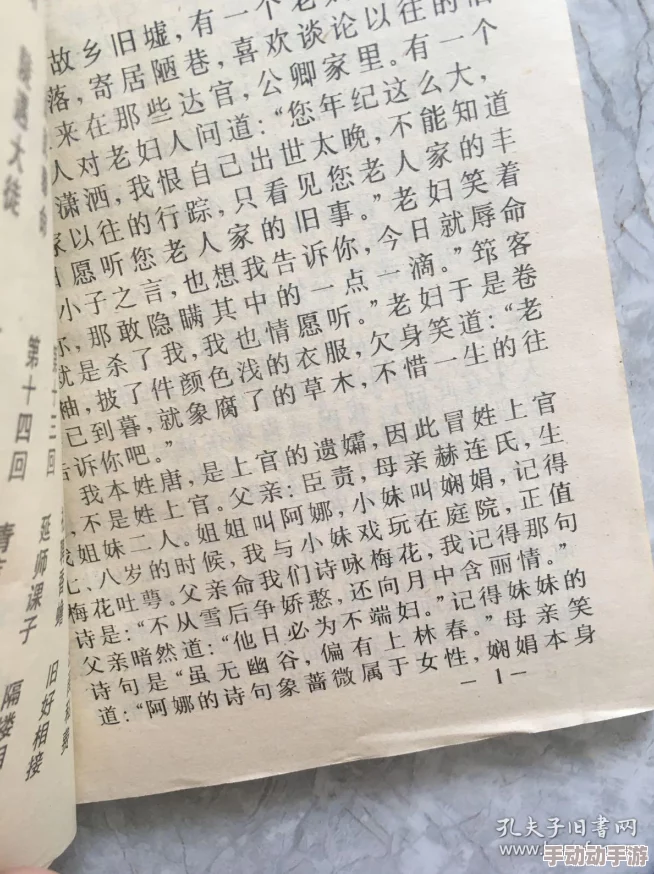 故乡旧墟,有一个老
落,寄居陋巷,喜欢谈论以往的
来在那些达官,公卿家里。有一个
人对老妇人问道:“您年纪这么大,
潇洒,我恨自己出世太晚,不能知道
家以往的行踪,只看见您老人家的丰
愿听您老人家的旧事。”老妇笑着
小子之言,也想我告诉你,今日就辱命
你,那敢隐瞒其中的一点一滴。”筇客
就是杀了我,我也情愿听。”老妇于是卷
袖,披了件颜色浅的衣服,欠身笑道:“老
已到暮,就象腐了的草木,不惜一生的往
告诉你吧。”
我本姓唐,是上官的遗孀,因此冒姓上官
,不是姓上官。父亲:臣责,母亲赫连氏,生
我姐妹二人。姐姐叫阿娜,小妹叫娴娟,记得
七、八岁的时候,我与小妹戏玩在庭院,正值
梅花吐萼。父亲命我们诗咏梅花,我记得那句
诗是:“不从雪后争娇憨,还向月中含丽情。”
父亲暗然道:“他日必为不端妇。”记得妹妹的
诗句是“虽无幽谷,偏有上林春。”母亲笑
道:“阿娜的诗句象蔷薇属于女性,娴娟本身
— 1 —
第十三回
延师课子
旧好相接
第十四回
隔楼相
孔夫子旧書网
手动动手游